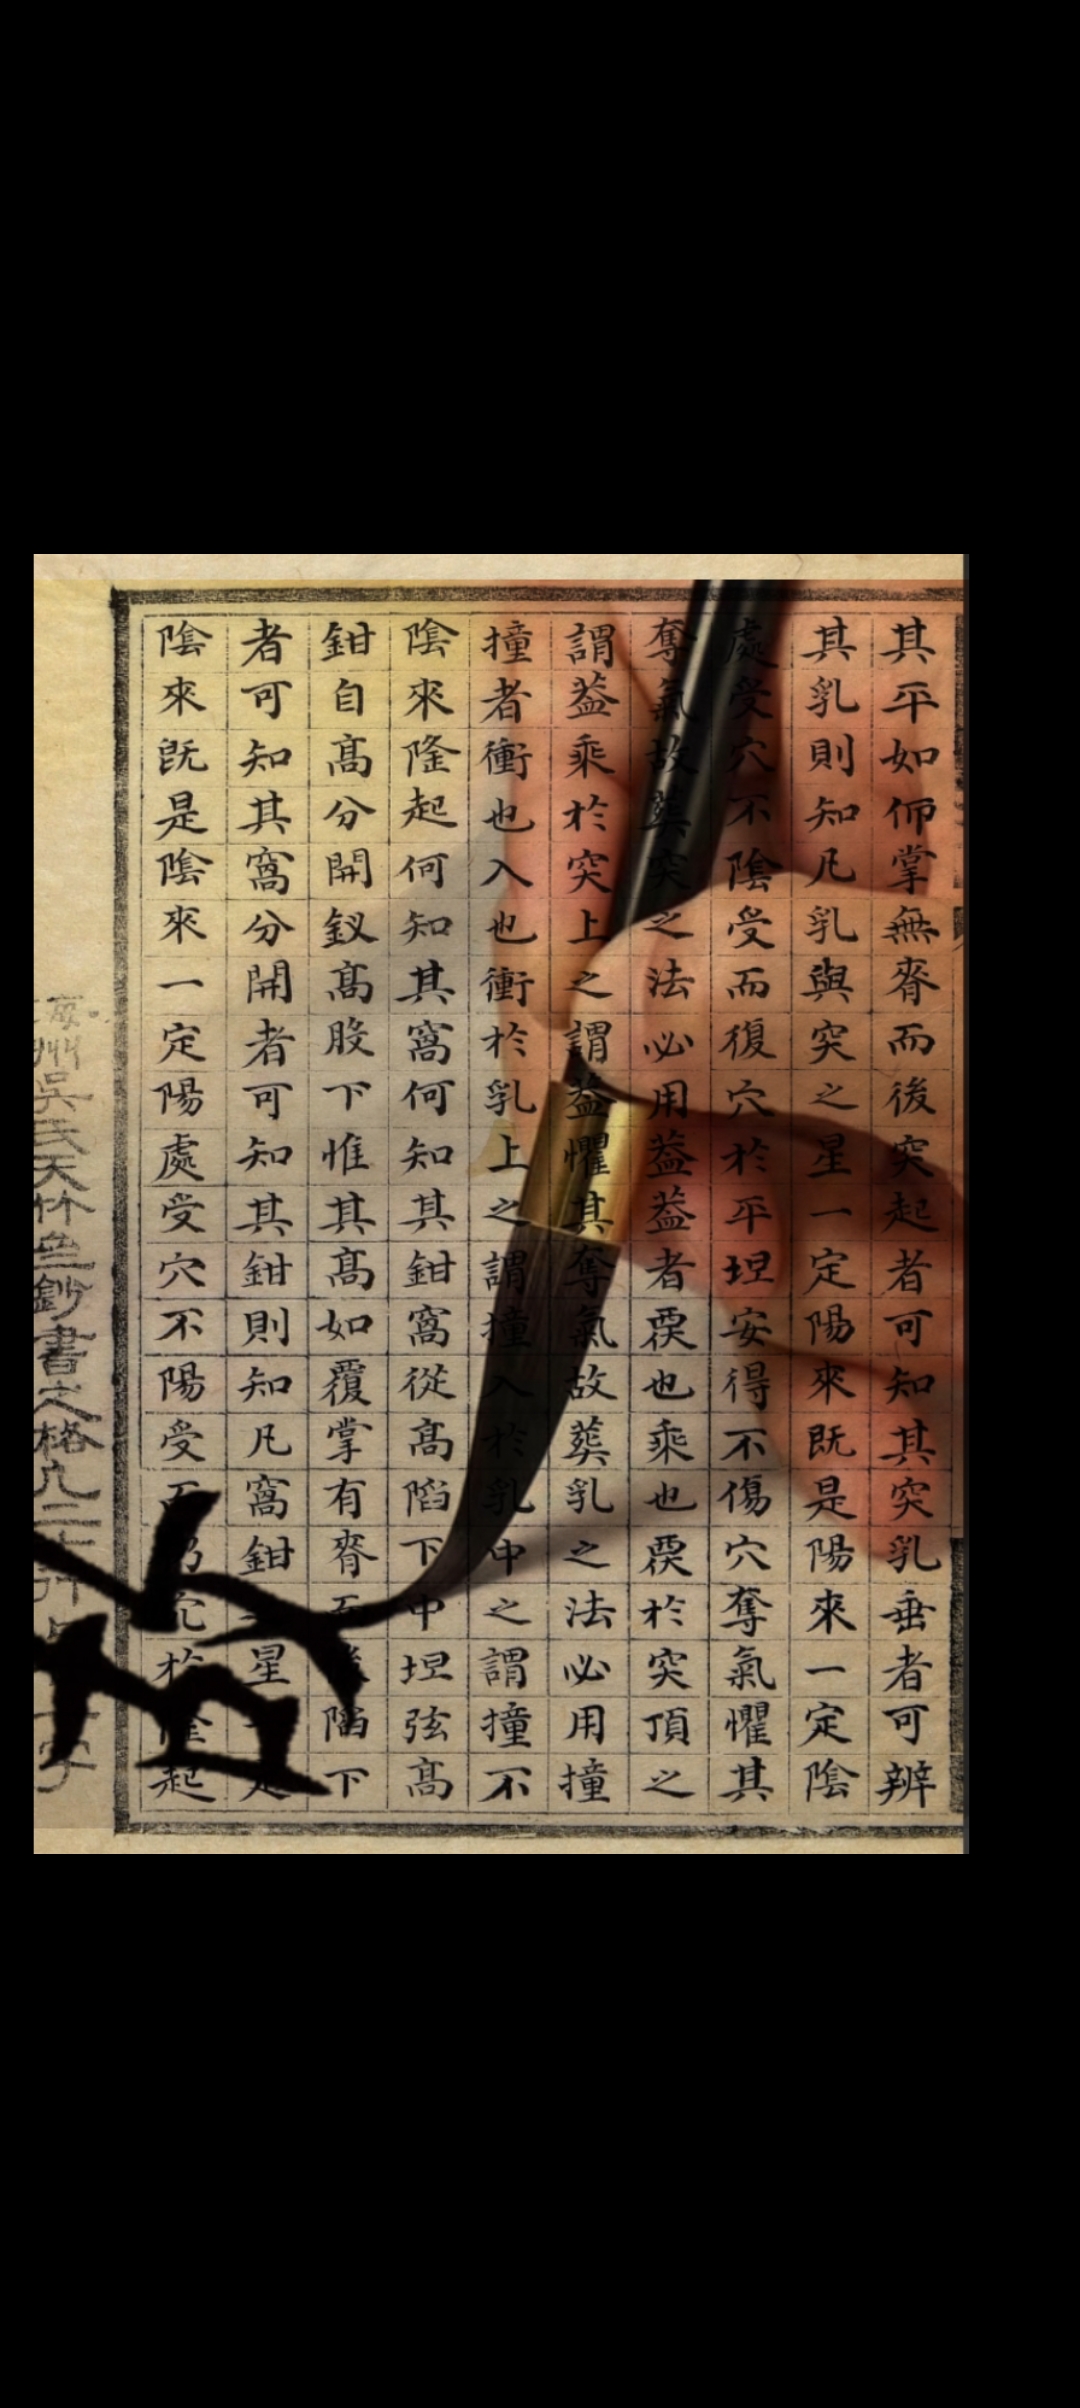 其平如仰掌無脊而後突起者可知其突乳垂者可辨
其乳則知凡乳與突之星一定陽來既是陽來一定陰
處受穴不陰受而復穴於平坦安得不傷穴奪氣懼其
奪氣故葬突之法必用葢葢者覆也乘也覆於突頂之
謂葢乘於突上之謂葢懼其奪氣故葬乳之法必用撞
撞者衝也入也衝於乳上之謂撞入於乳中之謂撞不
陰來隆起何知其窩何知其鉗窩從高陷下中坦弦高
鉗自高分開釵高股下惟其高如覆掌有脊陷下
者可知其窩分開者可知其鉗則知凡窩鉗星
陰來既是陰來一定陽處受穴不陽受於隆起
吳氏天鈔書之格九二十行